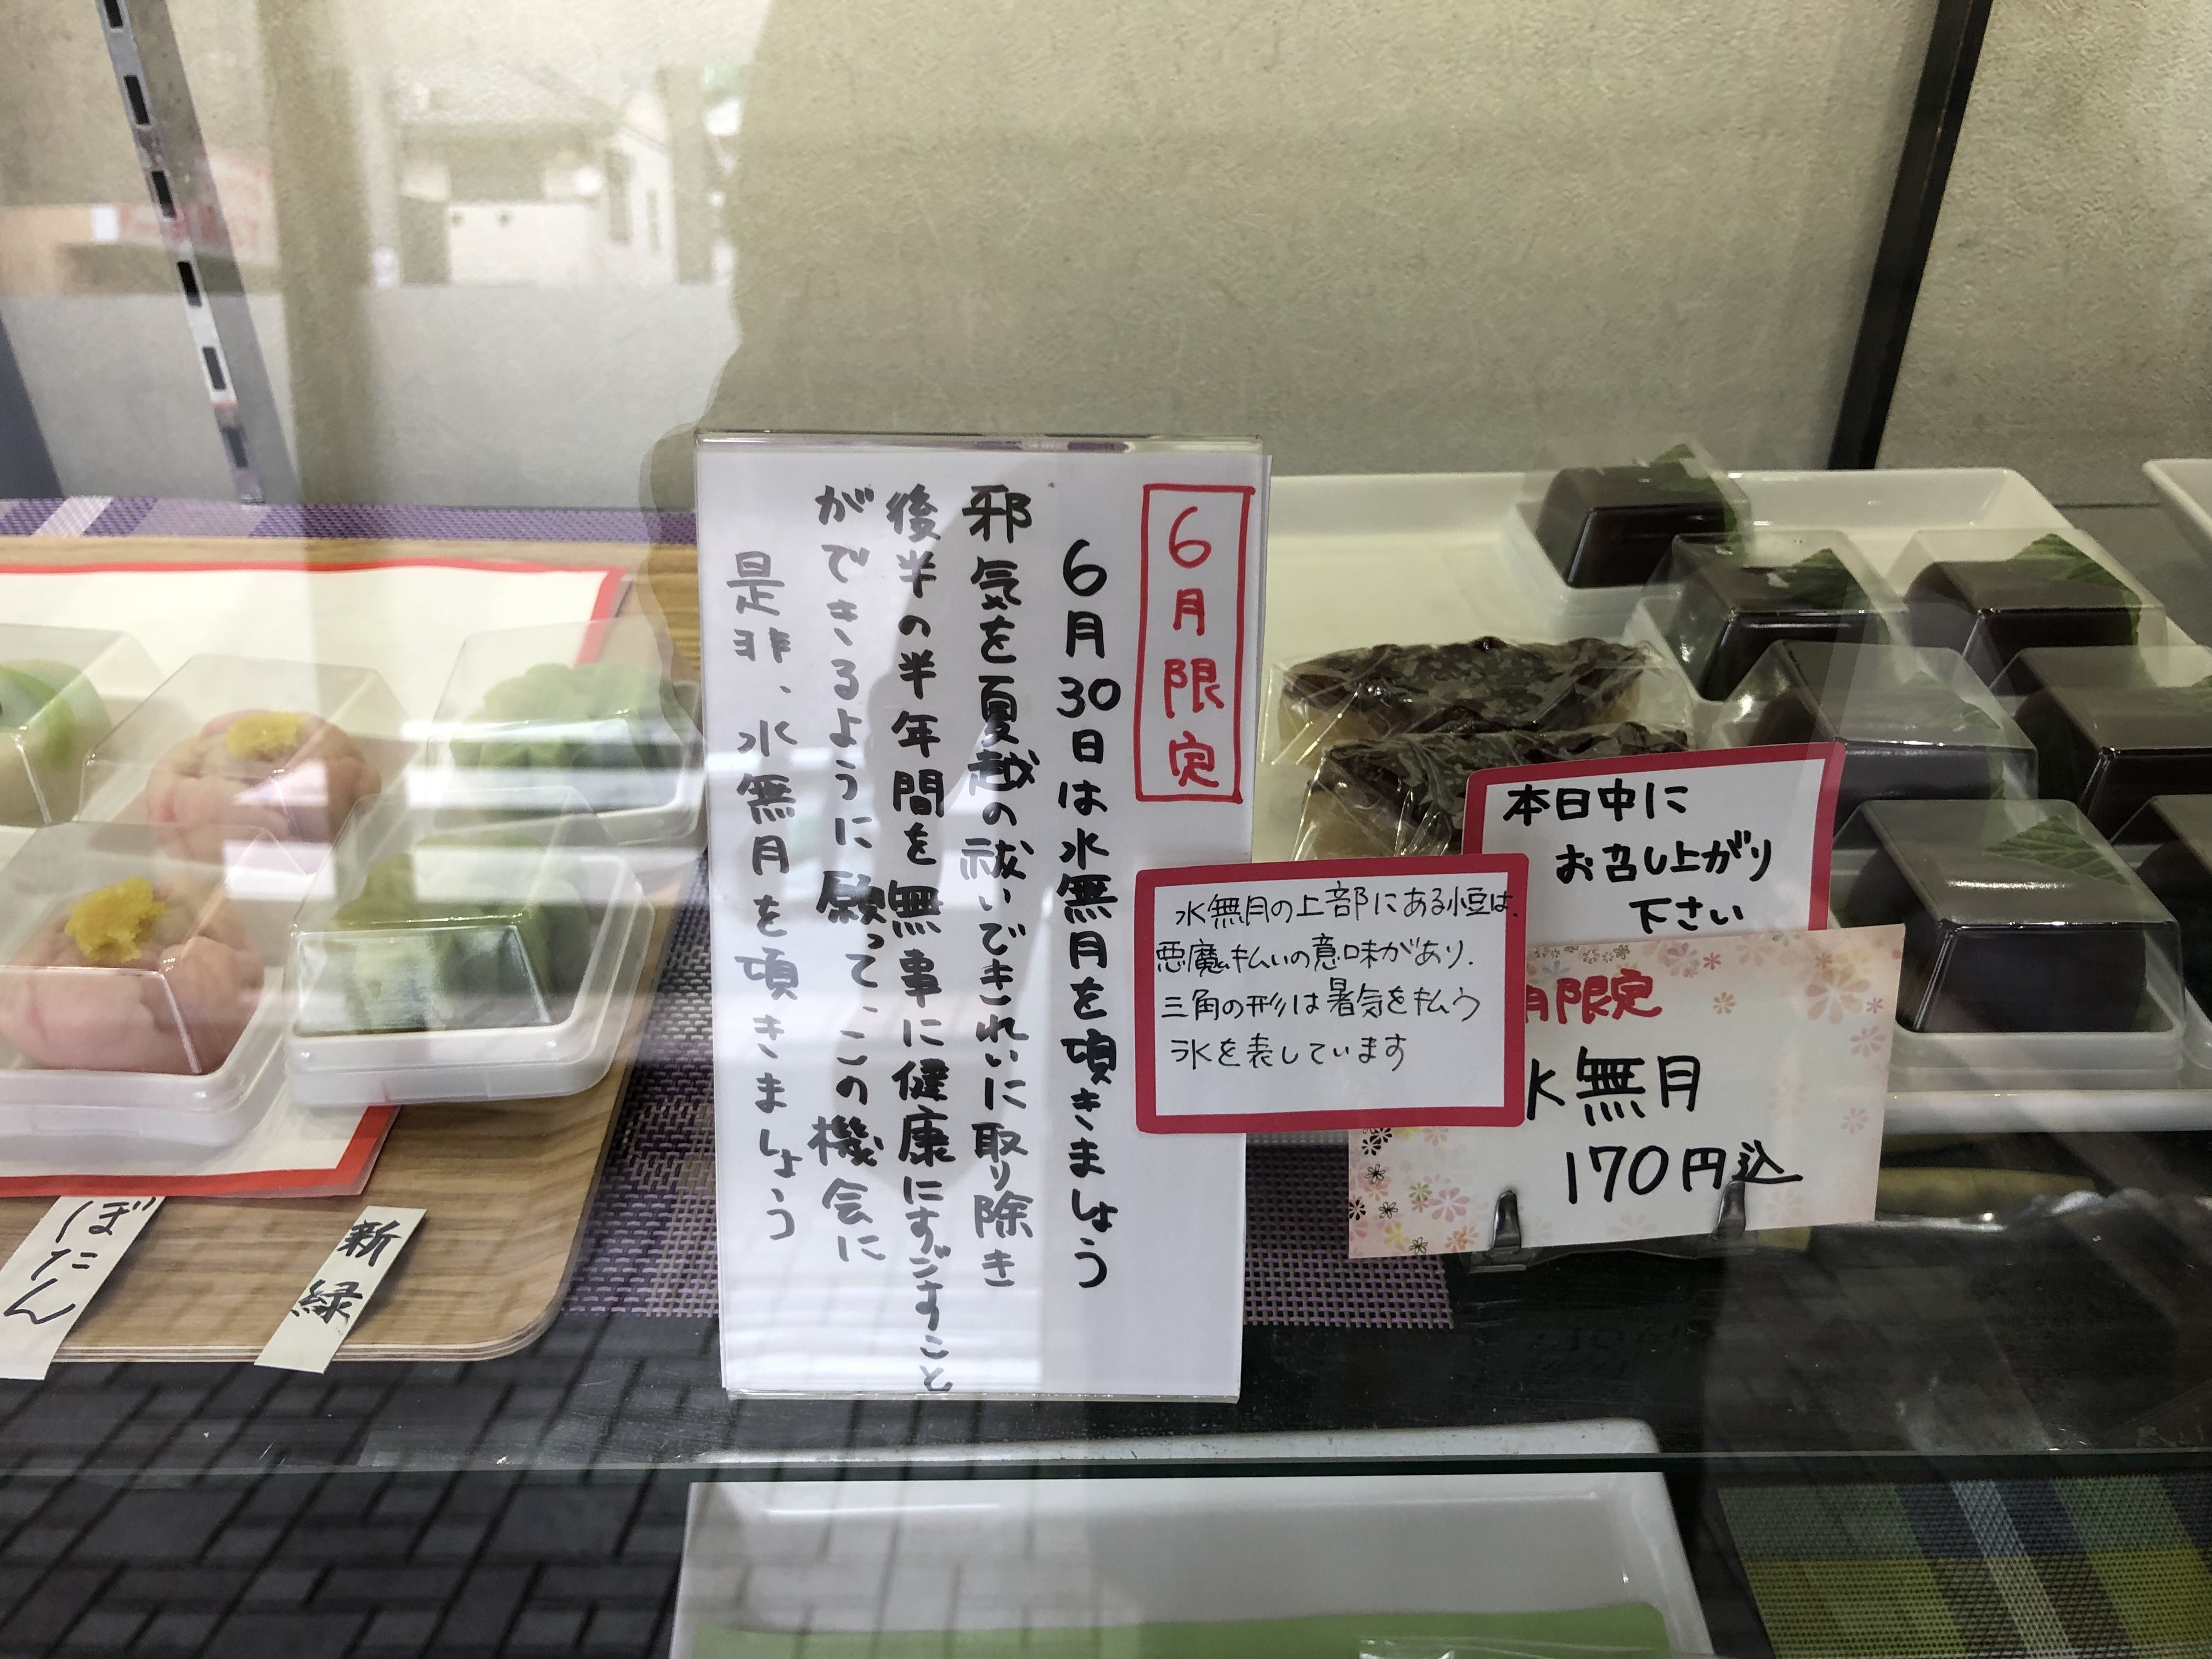 6月限定
6月30日は水無月を頃きましょう
邪気を夏越の祓いできれいに取り除き
後半の半年間を無事に健康にすごすこと
ができるように願って、この機会に
是非、水無月を頃きましょう
水無月の上部にある小豆は、
悪魔払いの意味があり、
三角の形は暑気を払う
氷を表しています
本日中に
お召し上がり
下さい
月限定
水無月
170円込
ぼたん
新緑